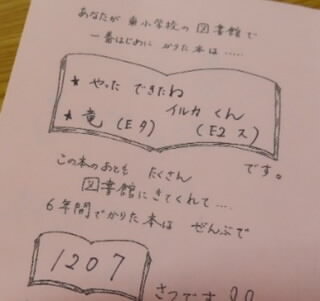 あなたが 東小学校の 図書館で
一番はじめに かりた本は……
★ やった できたね
イルカくん
★ 竜 (Eタ) (E2 ス)
です。
この本のあとも たくさん
図書館にきてくれて….
6年間でかりた本は ぜんぶで
1207
さつです